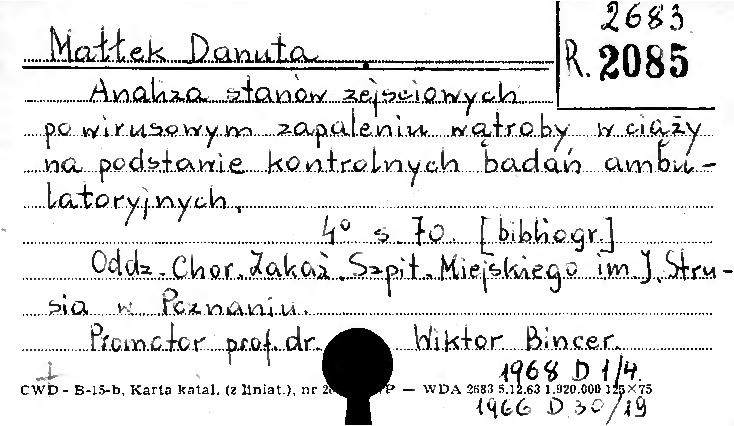 2683
Małłek Danuta
R. 2085
Analiza stanów zejściowych
po wirusowym zapaleniu wątroby w ciąży
na podstanie kontrolnych badań ambu-
latoryjnych.
4° s. 70. [bibliogr.]
Oddz. Chor. Zakaź. Szpit. Miejskiego im. J. Stru-
sia w Poznaniu.
Promotor prof. dr. Wiktor Bincer.
1968 D 1/4.
CWD - B-15-b, Karta katal. (z liniat.), nr — WDA 2683 5.12.63 1.920.000 125×75
1966 D 30/19